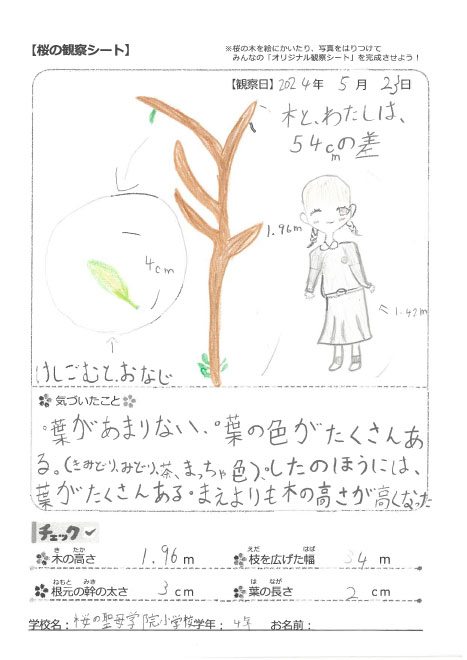 【桜の観察シート】
※桜の木を絵にかいたり、写真をはりつけて
みんなの「オリジナル観察シート」を完成させよう！
【観察日】2024年 5月 23日
木と、わたしは、
54cmの差
1.96m
4cm
1.42m
けしごむと、おなじ
気づいたこと
・葉があまりない、・葉の色がたくさんあ
る。(きみどり、みどり、茶、まっちゃ色)、・したのほうには、
葉がたくさんある・まえよりも木の高さが高くなった
チェック
木の高さ 1.96 m
枝を広げた幅 34 m
根元の幹の太さ 3 cm
葉の長さ 2 cm
学校名：桜の聖母学院小学校 学年：4年 お名前：